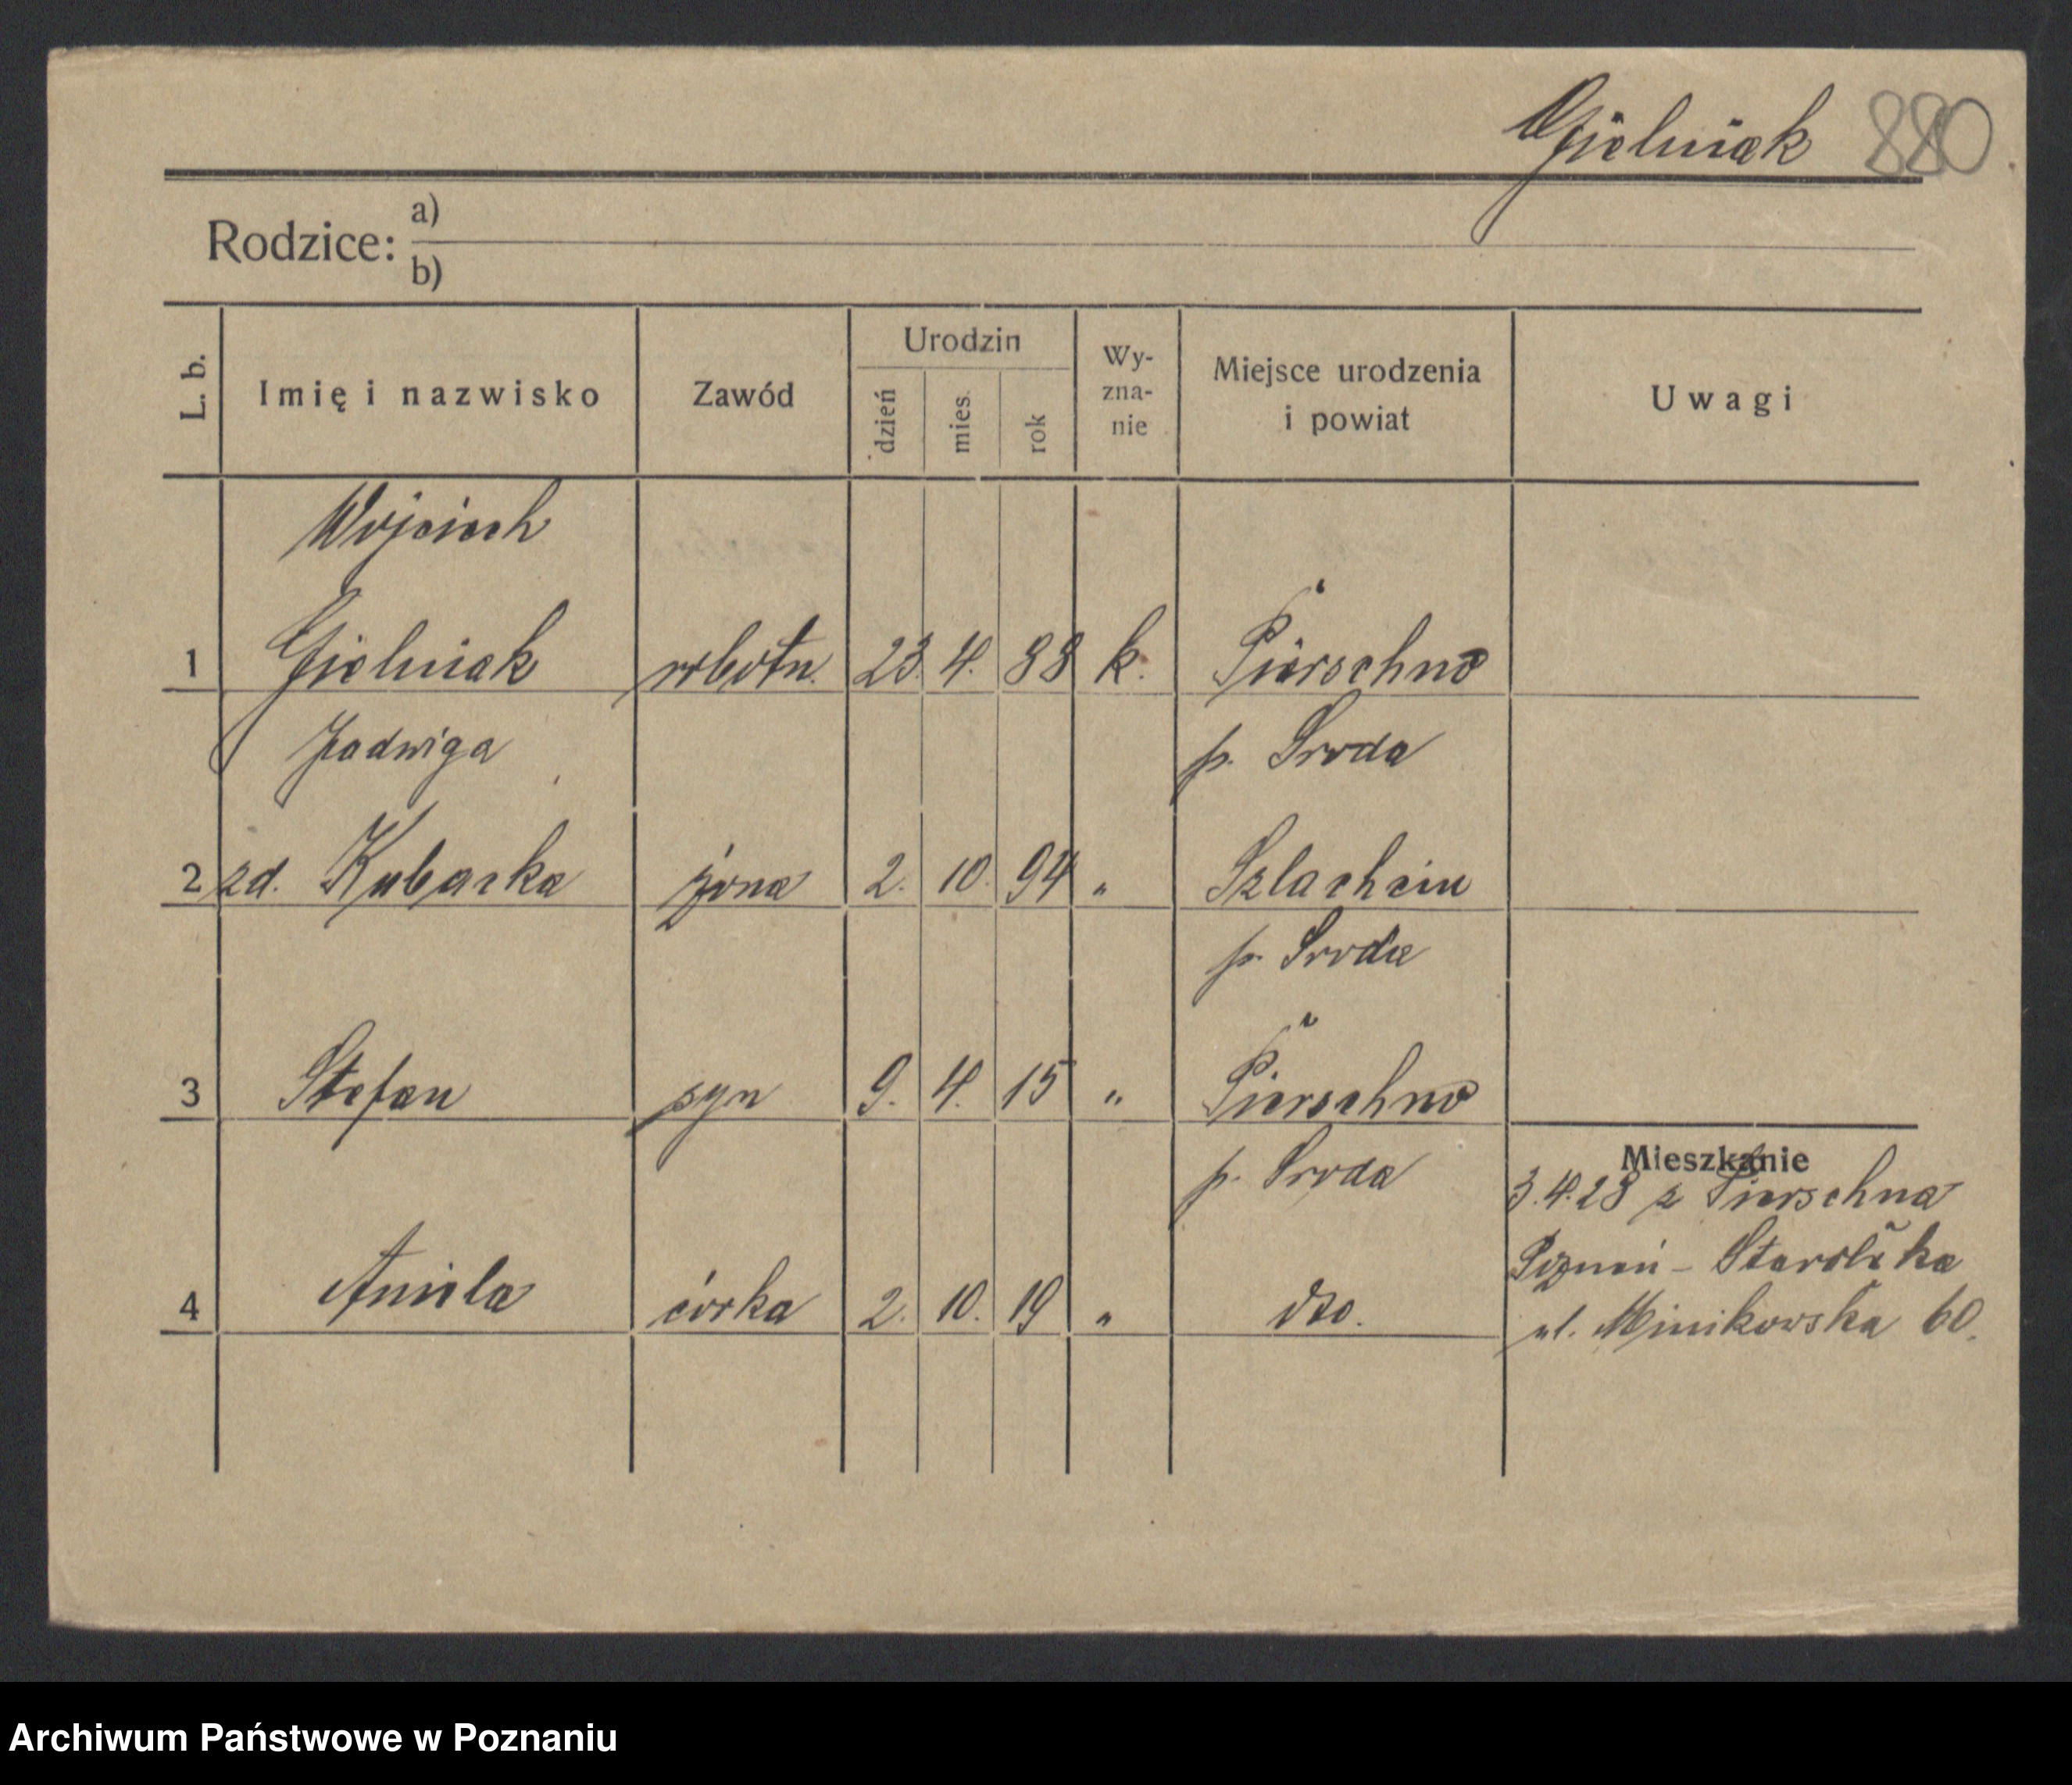 Gielniak 880
Rodzice: a)
b)
L. b. Imię i nazwisko Zawód Urodzin dzień mies. rok Wy-zna-nie Miejsce urodzenia i powiat Uwagi
Wojciech
1 Gielniak robotn. 23. 4. 88 k. Pierschno
Jadwiga p. Sroda
2 zd. Kubacka żona 2. 10. 94 „ Szlachcin
p. Sroda
3 Stefan syn 9. 4. 15 „ Pierschno
p. Sroda
Mieszkanie
3.4.28 z Pierschna
Poznań - Starołęka
ul. Minikowska 60.
4 Aniela córka 2. 10. 19 „ dto.
Archiwum Państwowe w Poznaniu